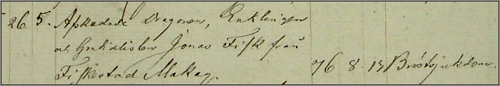 26. 5. Afskedade Dragonen, Enklingen
och Gratialisten Jonas Fisk från
Fiskestad Makeg. 76 8 13 Bröstsjukdom.